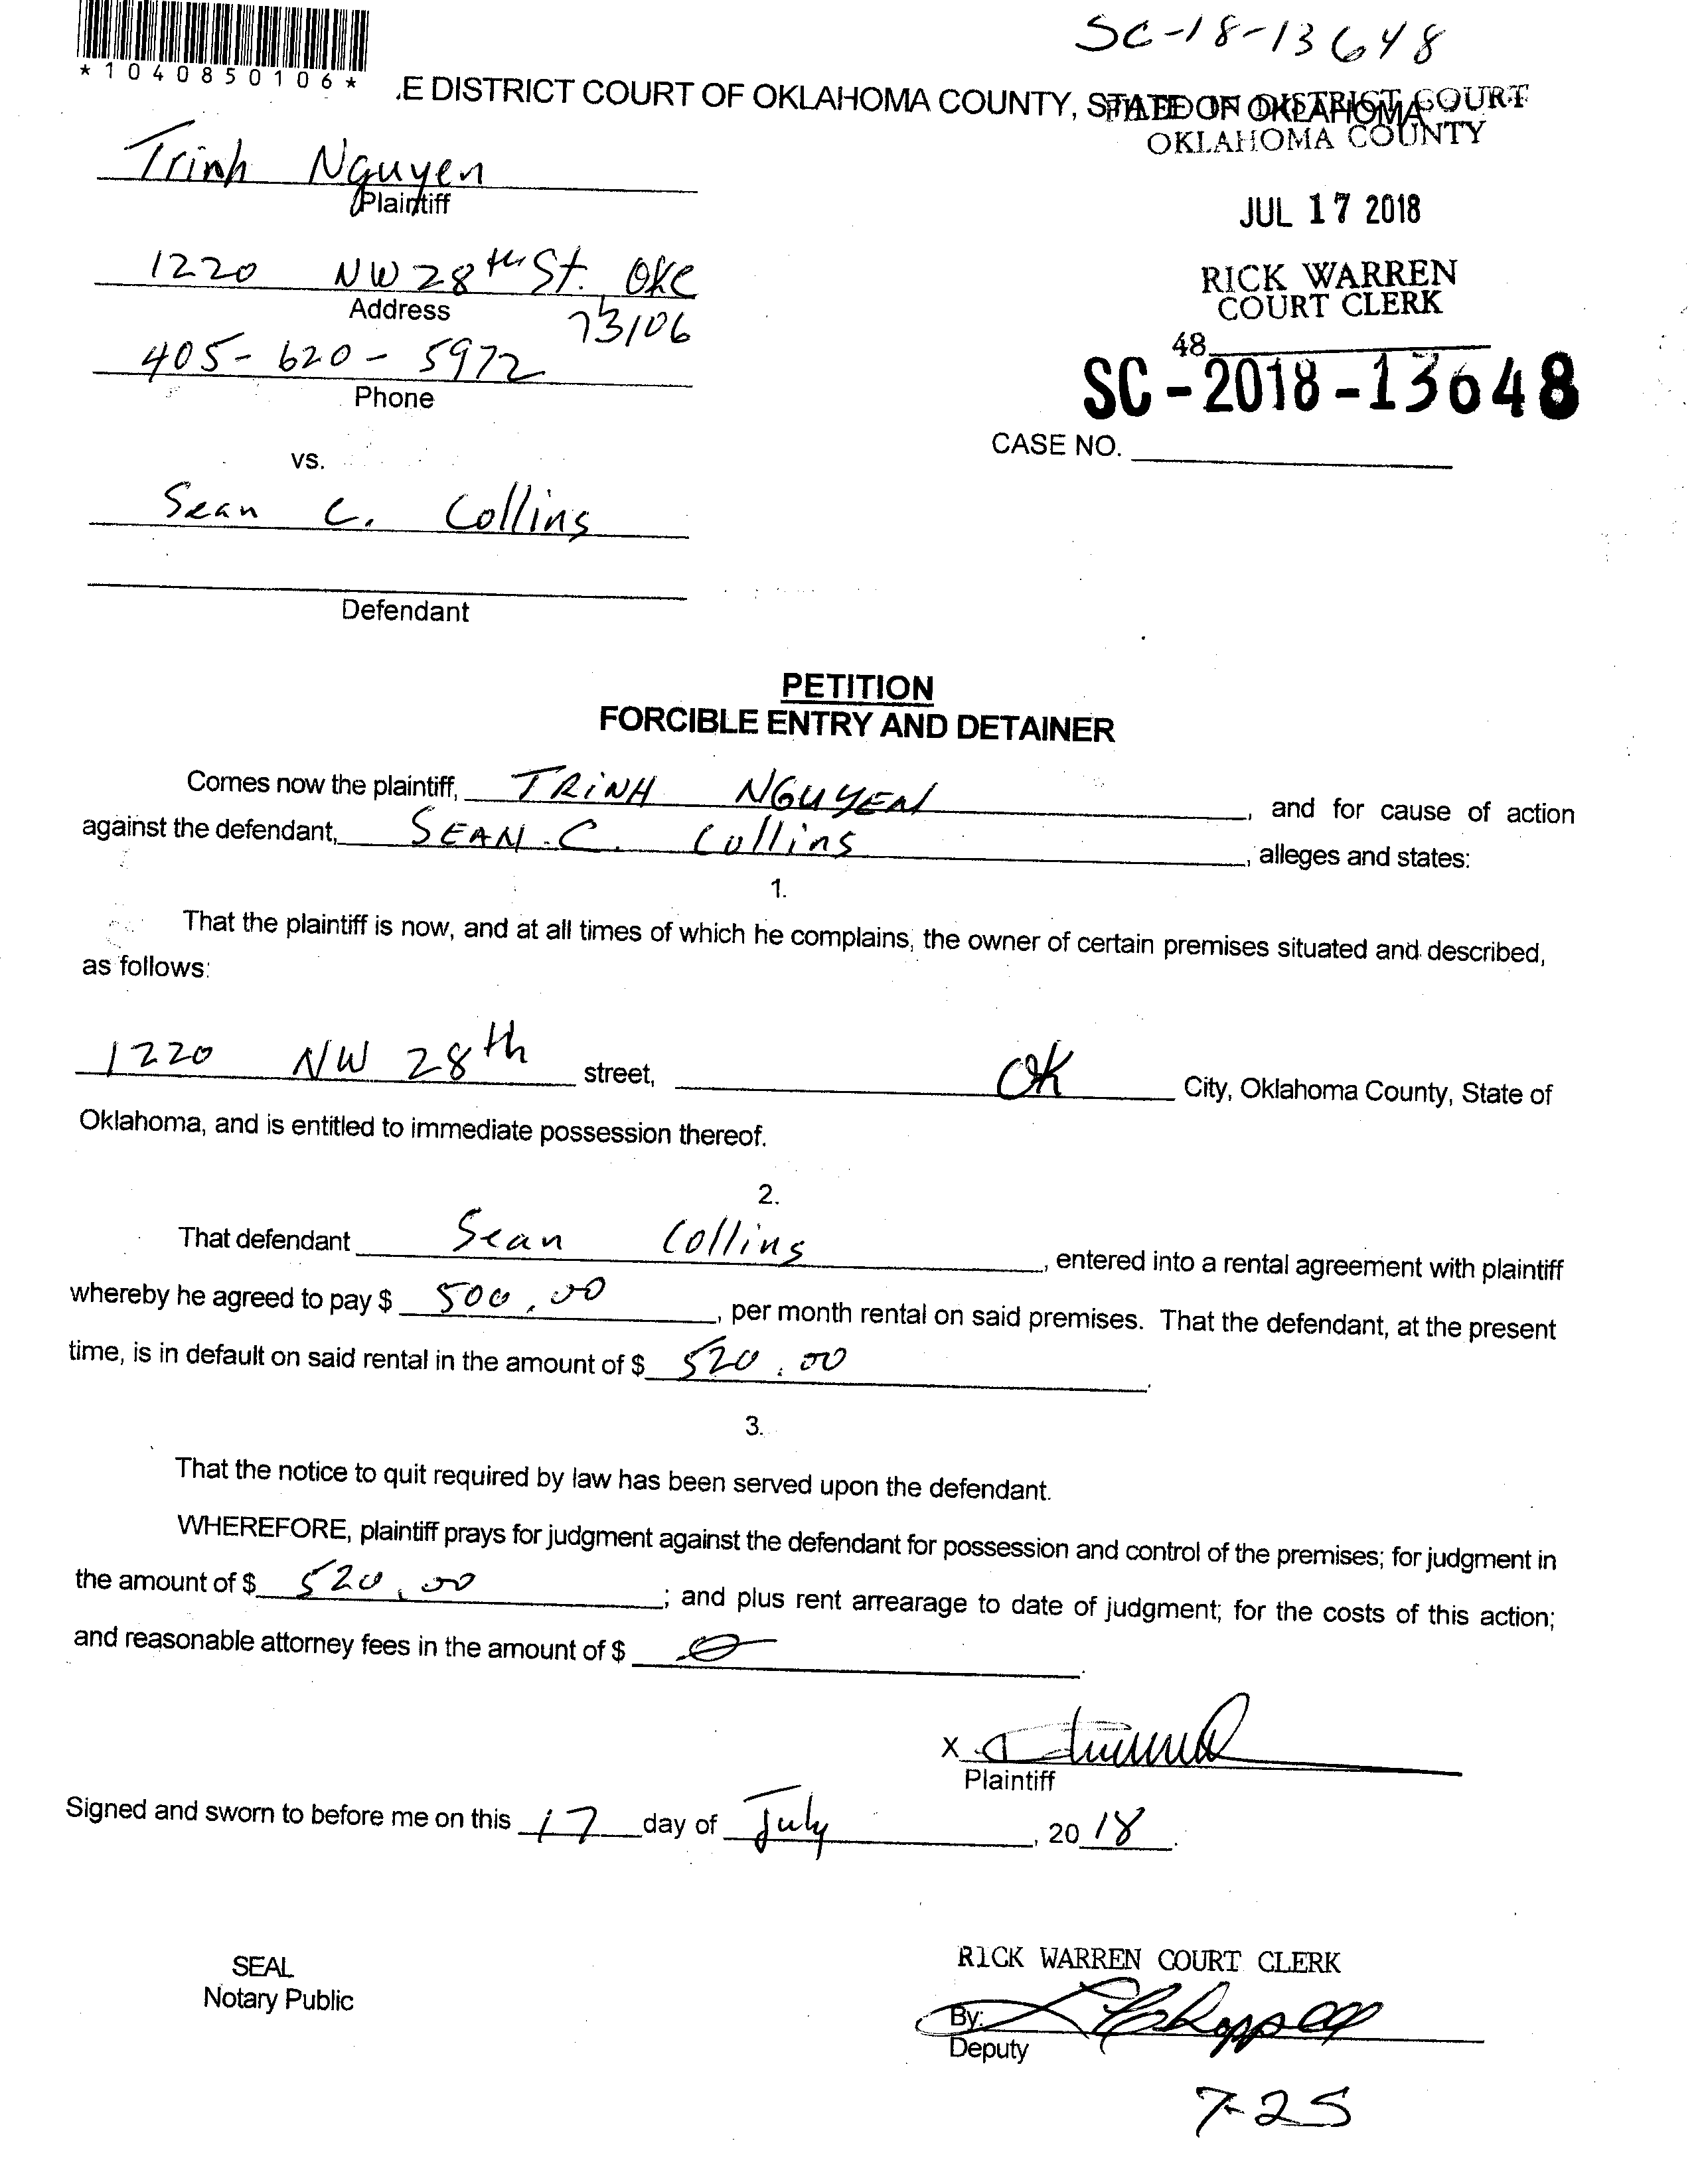 SC-18-13648
*1040850106*
.E DISTRICT COURT OF OKLAHOMA COUNTY, STATE OF OKLAHOMA
FILED IN DISTRICT COURT
OKLAHOMA COUNTY
Trinh Nguyen
Plaintiff
JUL 17 2018
1220 NW 28th St. OKC
Address
73106
RICK WARREN
COURT CLERK
405-620-5972
Phone
48
SC-2018-13648
CASE NO.
vs.
Sean C. Collins
Defendant
PETITION
FORCIBLE ENTRY AND DETAINER
Comes now the plaintiff, TRINH NGUYEN, and for cause of action
against the defendant, SEAN. C. Collins, alleges and states:
1.
That the plaintiff is now, and at all times of which he complains, the owner of certain premises situated and described,
as follows:
1220 NW 28th street, OK City, Oklahoma County, State of
Oklahoma, and is entitled to immediate possession thereof.
2.
That defendant Sean Collins, entered into a rental agreement with plaintiff
whereby he agreed to pay $ 500.00, per month rental on said premises. That the defendant, at the present
time, is in default on said rental in the amount of $ 520.00.
3.
That the notice to quit required by law has been served upon the defendant.
WHEREFORE, plaintiff prays for judgment against the defendant for possession and control of the premises; for judgment in
the amount of $ 520.00; and plus rent arrearage to date of judgment; for the costs of this action;
and reasonable attorney fees in the amount of $ 0.
X
Plaintiff
Signed and sworn to before me on this 17 day of July, 2018.
SEAL
Notary Public
RICK WARREN COURT CLERK
By:
Deputy
7-25